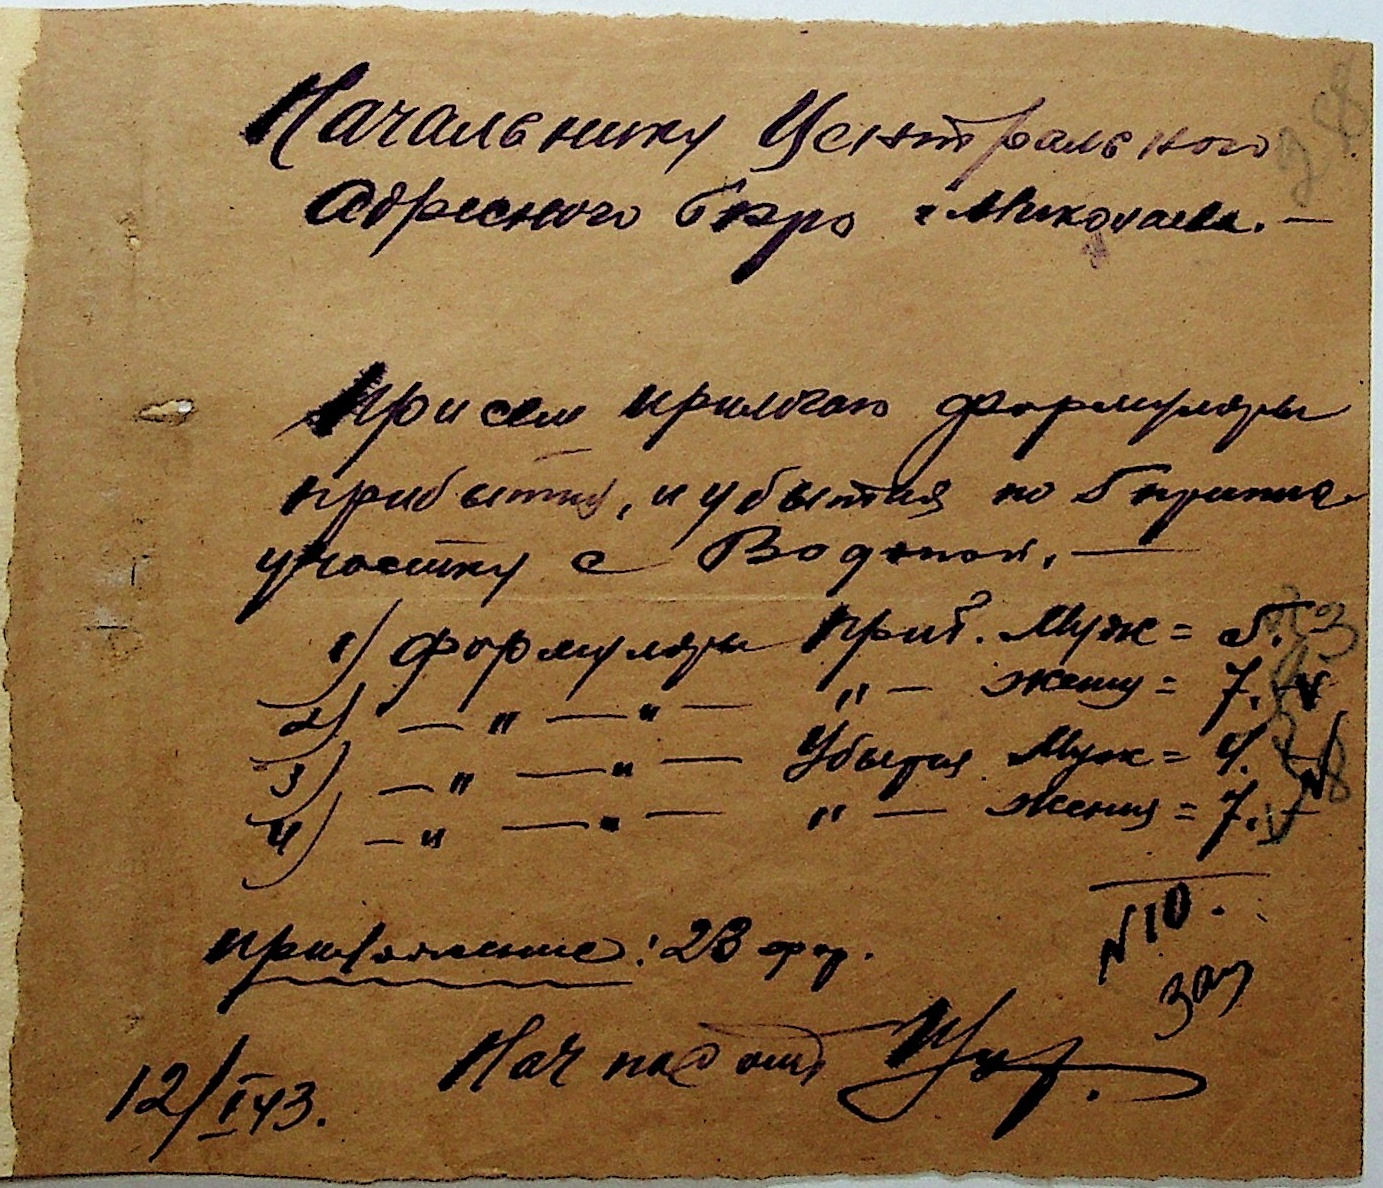 Начальнику Центрального
Адресного бюро г. Николаева. —
При сем прилогаю формуляры
прибытия, и убытия по
участку с Водяной. —
1) формуляры приб. Муж = 5.
2) — " — " — " — женщ = 7.
3) — " — " — Убытия Муж = 4.
4) — " — " — " — жения = 7.
N10.
приложение: 23 фор.
Нач пасп
12/I 43.
28